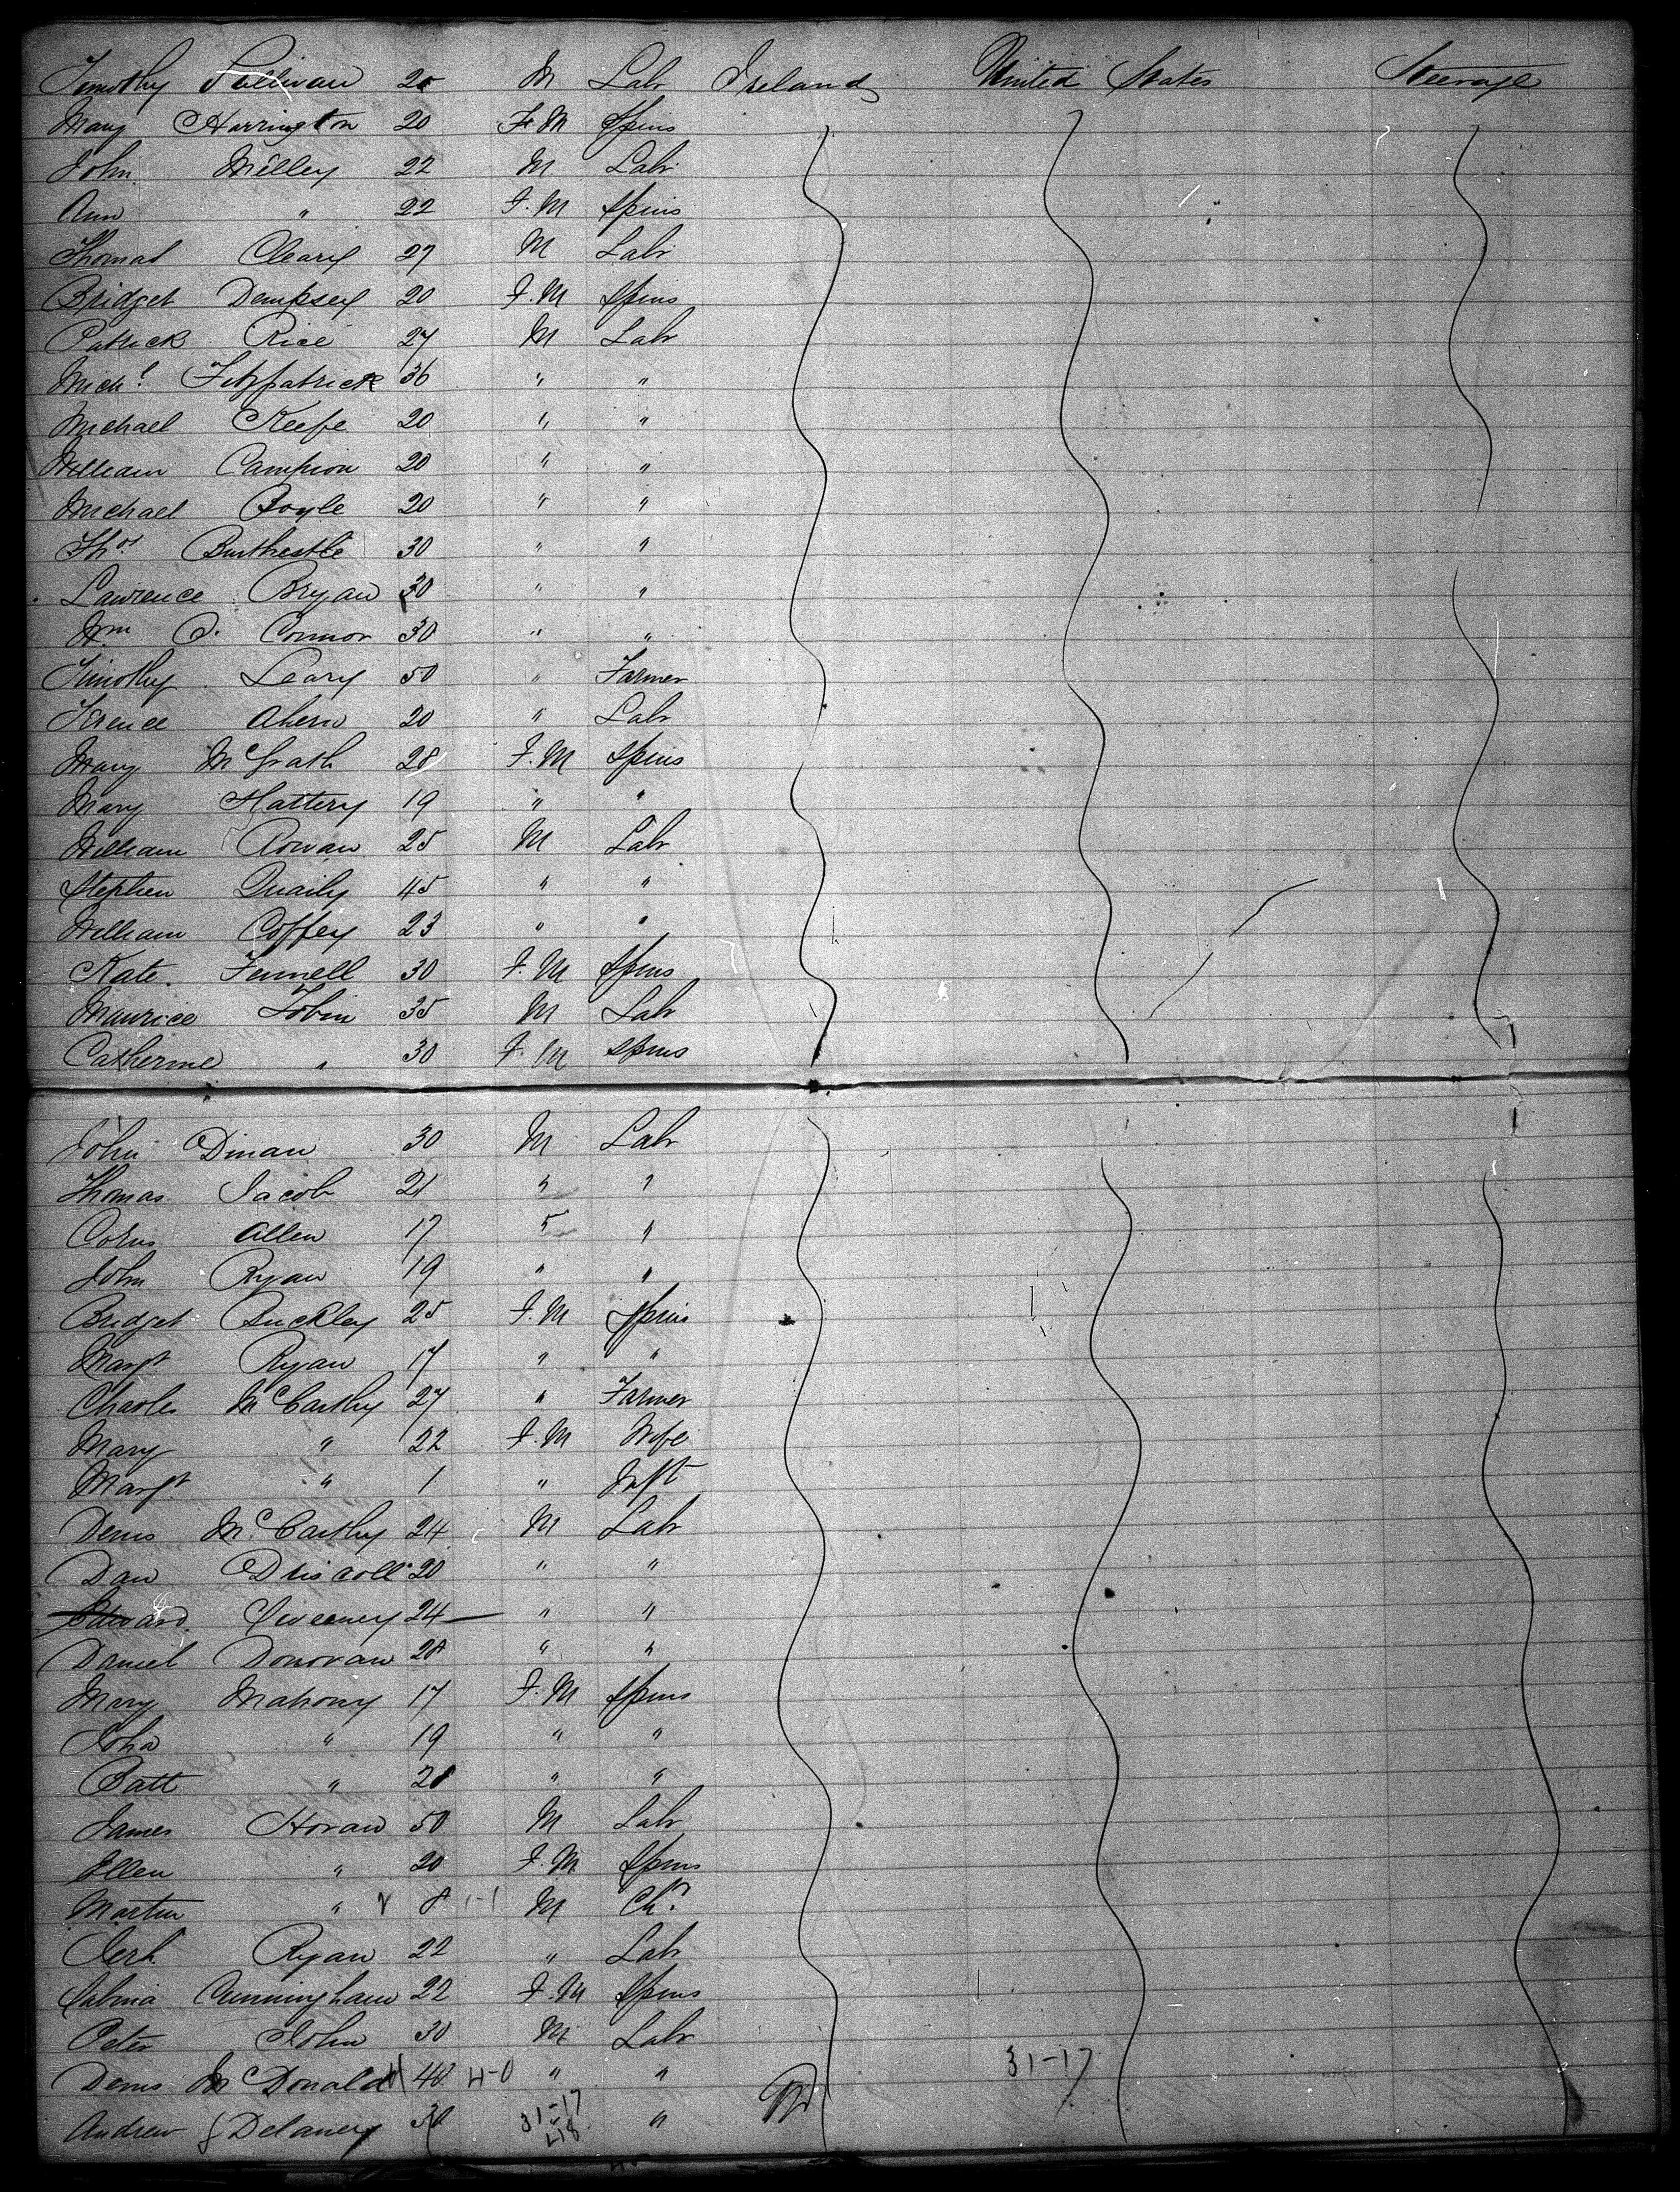 Timothy Sullivan 25 M Labr Ireland United States Steerage
Mary Harrington 20 F.M Spins
John Milley 22 M Labr
Ann " 22 F.M Spins
Thomas Cleary 27 M Labr
Bridget Dempsey 20 F.M Spins
Patrick Rice 27 M Labr
Michl Fitzpatrick 36 " "
Michael Keefe 20 " "
William Campion 20 " "
Michael Boyle 20 " "
Thos 30 " "
Lawrence Bryan 30 " "
Wm O. Connor 30 " "
Timothy Leary 50 " Farmer
Terence Ahern 20 " Labr
Mary McGrath 28 F.M Spins
Mary Hattery 19 " "
William Rowan 25 M Labr
Stephen Quaily 45 " "
William Coffey 23 " "
Kate Fennell 30 F.M Spins
Maurice Tobin 35 M Labr
Catherine " 30 F.M Spins
John Dinan 30 M Labr
Thomas Jacob 21 " "
Corns Allen 17 " "
John Ryan 19 " "
Bridget Buckley 25 F.M Spins
Margt Ryan 17 " "
Charles McCarthy 27 " Farmer
Mary " 22 F.M Wife
Margt " 1 " Inft
Denis McCarthy 24 M Labr
Dan Driscoll 20 " "
Edward Sweeney 24 " "
Daniel Donovan 20 " "
Mary Mahony 17 F.M Spins
Joha " 19 " "
Batt " " "
James Horan 50 M Labr
Ellen " 20 F.M Spins
Martin " 8 M Ch.
Jerh Ryan 22 " Labr
Sabina Cunningham 22 F.M Spins
Peter John 30 M Labr
Denis McDonald 40 4-0 " " 31-17
Andrew Delaney 30 31-17 "